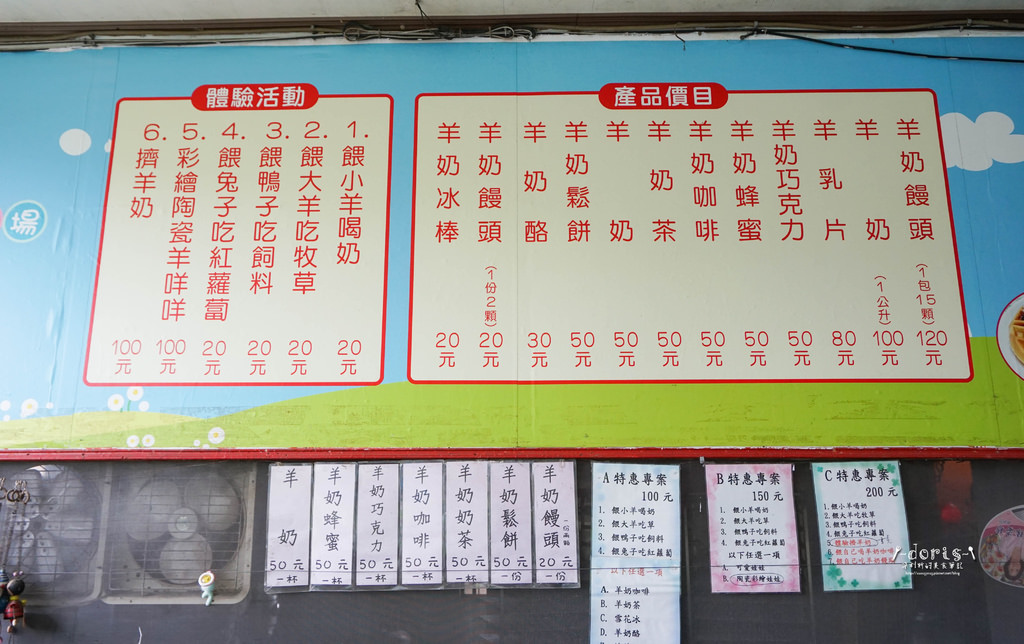 體驗活動
1. 餵小羊喝奶 20元
2. 餵大羊吃牧草 20元
3. 餵鴨子吃飼料 20元
4. 餵兔子吃紅蘿蔔 20元
5. 彩繪陶瓷羊咩咩 100元
6. 擠羊奶 100元
場
產品價目
羊奶饅頭(1包15顆) 120元
羊奶(1公升) 100元
羊乳片 80元
羊奶巧克力 50元
羊奶蜂蜜 50元
羊奶咖啡 50元
羊奶茶 50元
羊奶 50元
羊奶鬆餅 50元
羊奶酪 30元
羊奶饅頭(1份2顆) 20元
羊奶冰棒 20元
羊奶 50元 一杯
羊奶蜂蜜 50元 一杯
羊奶巧克力 50元 一杯
羊奶咖啡 50元 一杯
羊奶奶茶 50元 一杯
羊奶鬆餅 50元 一份
羊奶饅頭 一份兩顆 20元 一份
A 特惠專案
100 元
1. 餵小羊喝奶
2. 餵大羊吃草
3. 餵鴨子吃飼料
4. 餵兔子吃紅蘿蔔
以下任選一項
A. 羊奶咖啡
B. 羊奶茶
C. 雪花冰
D. 羊奶酪
B 特惠專案
150 元
1. 餵小羊喝奶
2. 餵大羊吃草
3. 餵鴨子吃飼料
4. 餵兔子吃紅蘿蔔
以下任選一項
A. 可愛娃娃
B. 陶瓷彩繪娃娃
C 特惠專案
200 元
1. 餵小羊喝奶
2. 餵大羊吃草
3. 餵鴨子吃飼料
4. 餵兔子吃紅蘿蔔
5. 體驗擠羊奶
doris